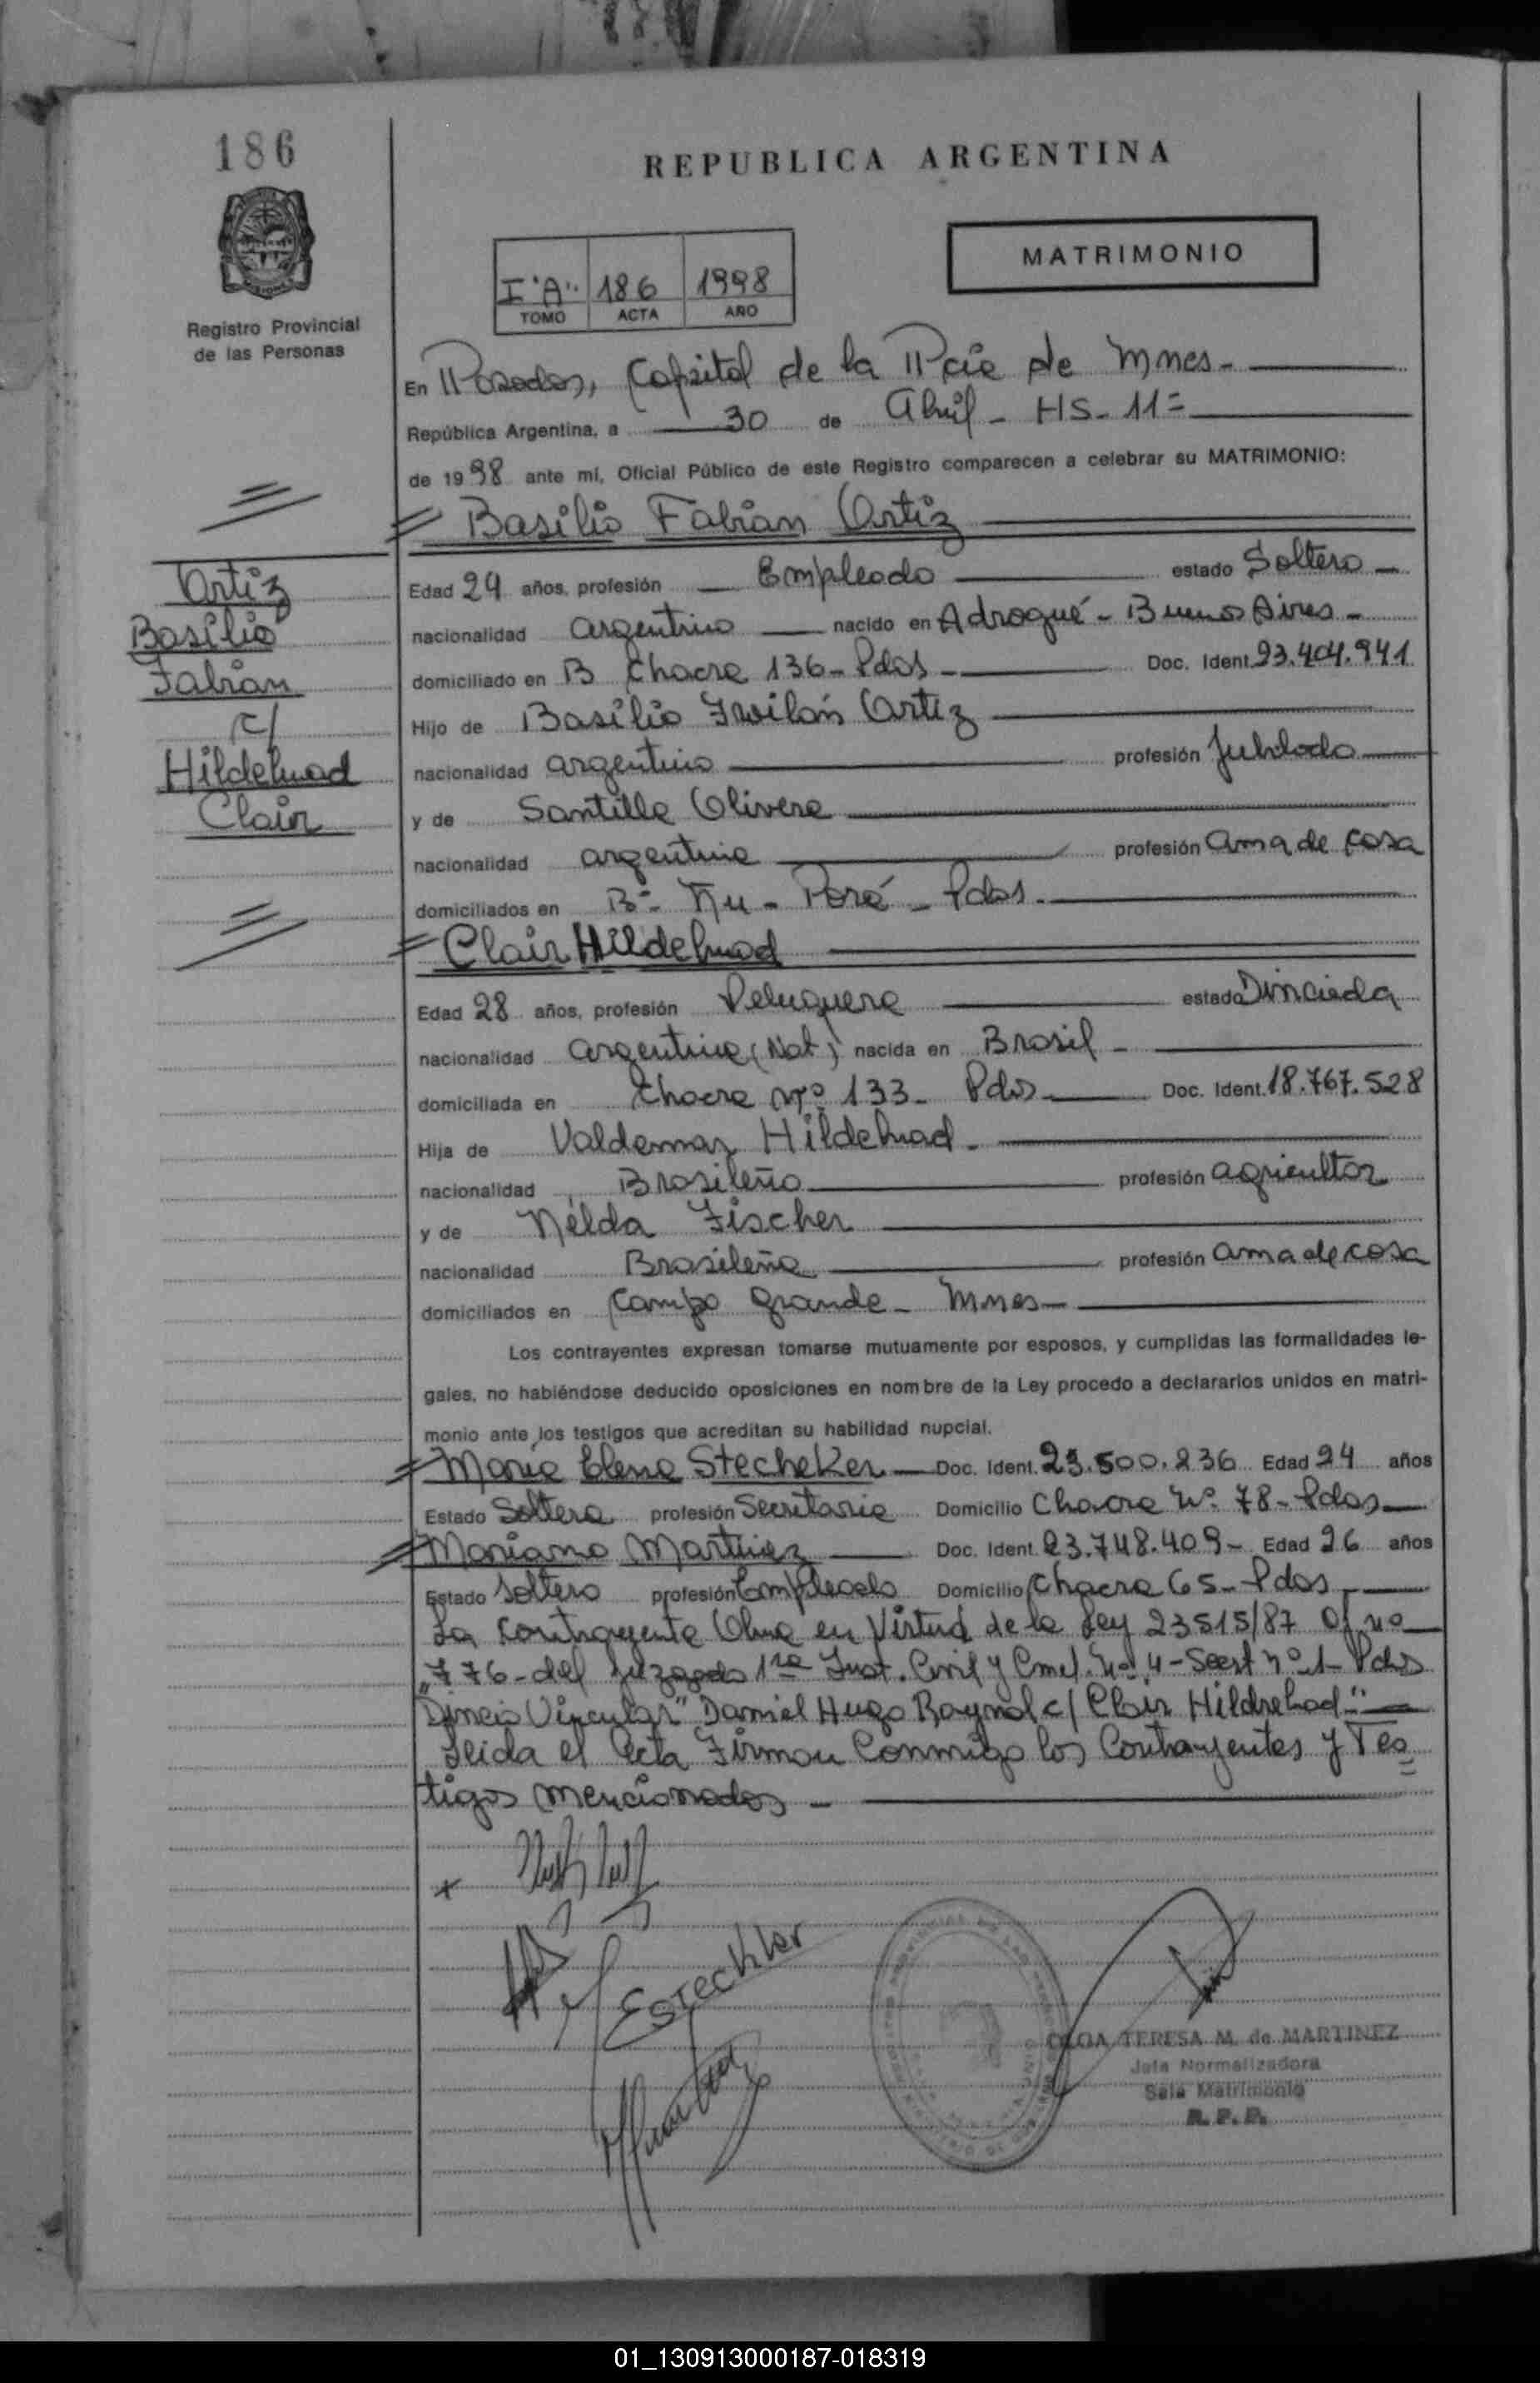 186
REPUBLICA ARGENTINA
MATRIMONIO
I "A" 186 1998
TOMO ACTA AÑO
Registro Provincial
de las Personas
En Posadas, Capital de la Pcia de Mnes-
República Argentina, a 30 de Abril - HS. 11=
de 1998 ante mí, Oficial Público de este Registro comparecen a celebrar su MATRIMONIO:
Basilio Fabian Ortiz
Ortiz
Basilio
Fabián
c/
Hildebrad
Clair
Edad 24 años, profesión Empleado estado Soltero
nacionalidad argentino nacido en Adrogué - Buenos Aires -
domiciliado en B Chacra 136 - Pdas - Doc. Ident. 23.404.941
Hijo de Basilio Ortiz
nacionalidad argentino profesión Jubilado
y de Santilla Olivera
nacionalidad argentina profesión ama de casa
domiciliados en B= Ñu - Porá - Pdas.
Clair Hildebrad
Edad 28 años, profesión Peluquera estado Divorciada
nacionalidad argentina (Nat) nacida en Brasil -
domiciliada en Chacra Nº 133 - Pdas Doc. Ident. 18.767.528
Hija de Valdemar Hildebrad -
nacionalidad Brasileño profesión agricultor
y de Nélda Fischer
nacionalidad Brasileña profesión ama de casa
domiciliados en Campo Grande - Mnes -
Los contrayentes expresan tomarse mutuamente por esposos, y cumplidas las formalidades le-
gales, no habiéndose deducido oposiciones en nombre de la Ley procedo a declararlos unidos en matri-
monio ante los testigos que acreditan su habilidad nupcial.
Maria Elena Stecheker Doc. Ident. 23.500.236 Edad 24 años
Estado Soltera profesión Secretaria Domicilio Chacra Nº 78 - Pdas
Mariano Martinez Doc. Ident. 23.748.409 - Edad 26 años
Estado Soltero profesión Empleado Domicilio Chacra 65 - Pdas
La contrayente Obra en Virtud de la Ley 23515/87 Of. nº
776 - del Juzgado 1ra Inst. Civil y Cmel. Nº 4 - Secrt nº 1 - Pdas
Vincular "Daniel Hugo Raynol c/ Clair Hildrebad"
Leida el Acta Firman Conmigo los Contrayentes y Tes
tigos mencionados -
EStechKer
OLGA TERESA M. de MARTINEZ
Jefa Normalizadora
Sala Matrimonio
R.P.P.
01_130913000187-018319